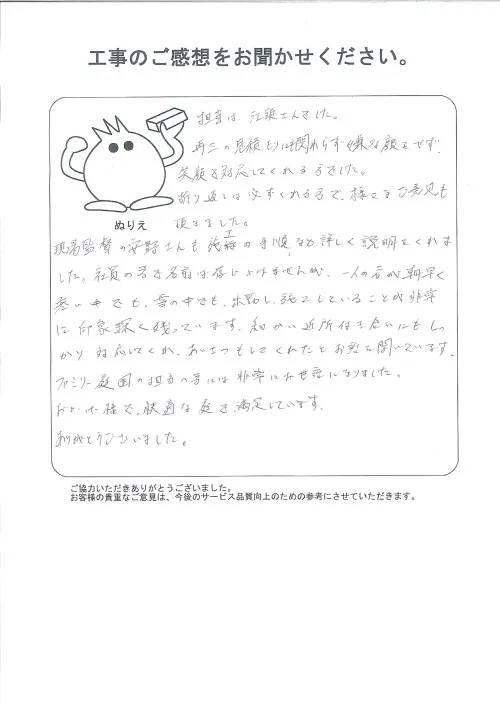 工事のご感想をお聞かせください。
担当は、江頭さんでした。
再三の見積もりにも関わらず嫌な顔もせず、
笑顔で対応してくれる方でした。
折り返しは必ずくれる方で、様々なご意見も
頂きました。
ぬりえ
現場監督の安野さんも施工の手順など詳しく説明をくれま
した。社員の方で名前は存じ上げませんが、一人の方が朝早く
寒い中でも、雪の中でも、出勤し、施工していることが非常
に印象深く残っています。細かい近所付き合いにもしっ
かり対応してくれ、あいさつもしてくれたとお聞きしています。
ファミリー庭園の担当の方には非常にお世話になりました。
おかげ様で、快適な庭で満足しています。
ありがとうございました。
ご協力いただきありがとうございました。
お客様の貴重なご意見は、今後のサービス品質向上のための参考にさせていただきます。